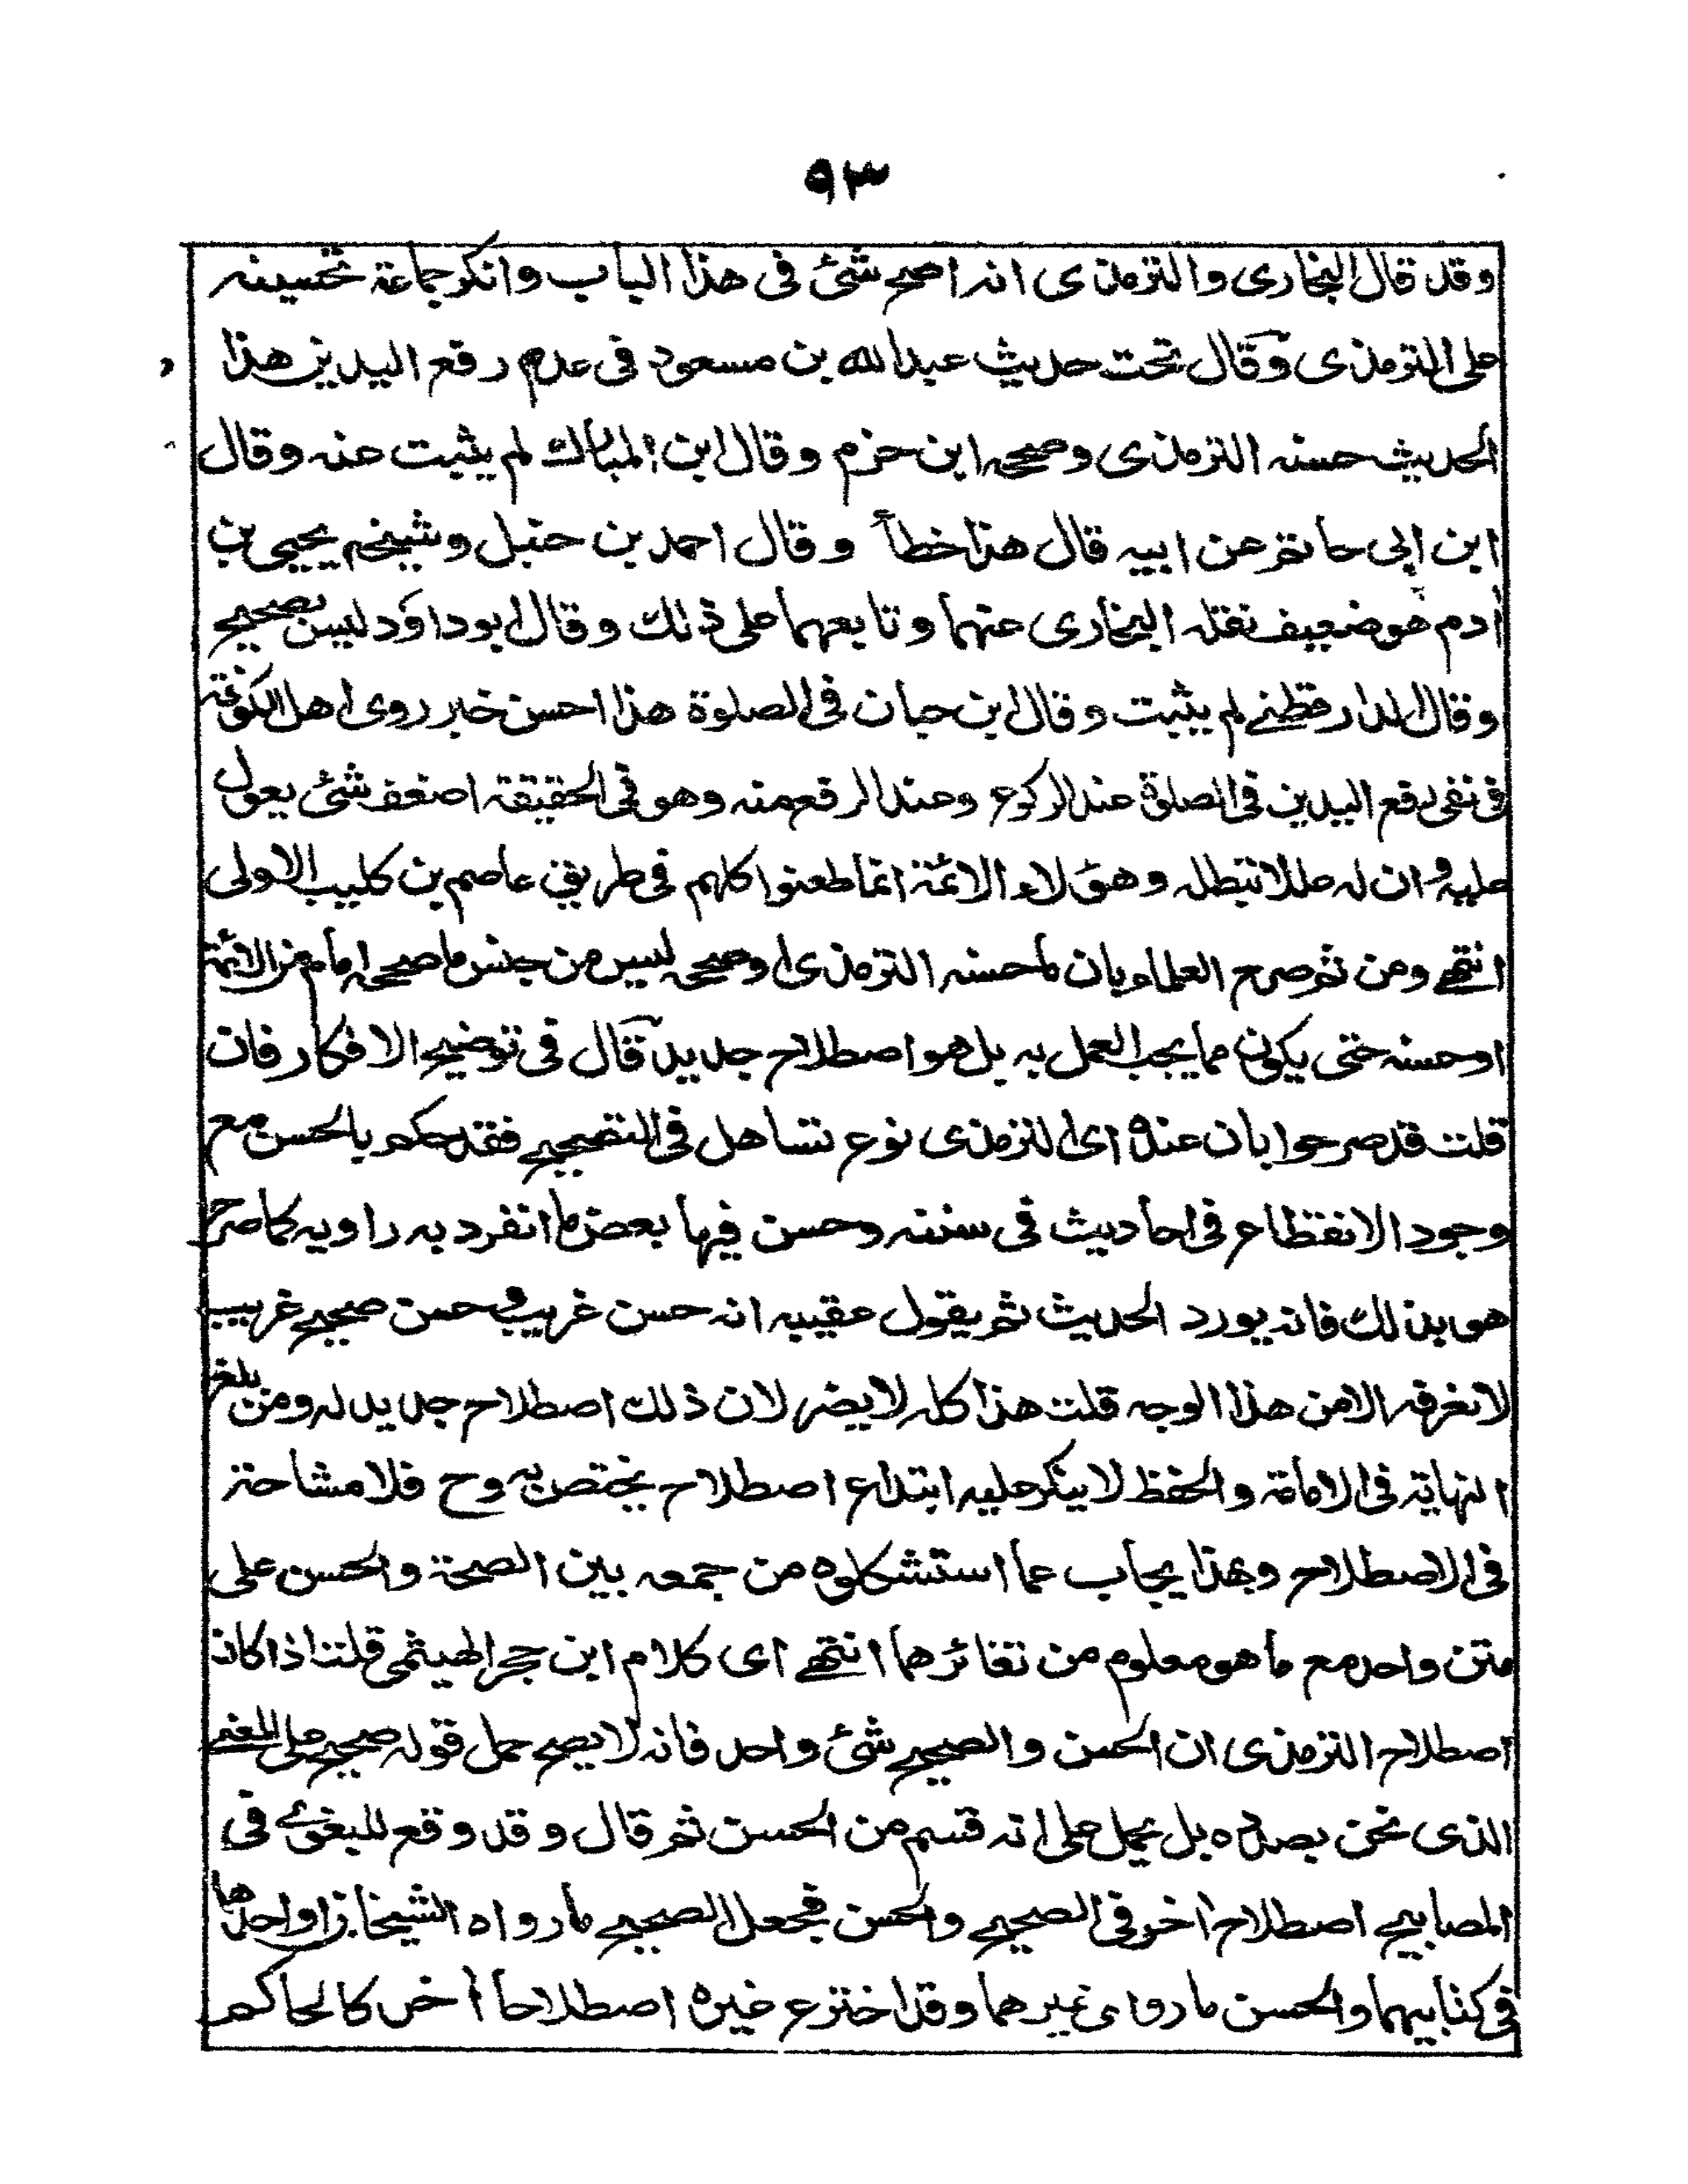 ٩٣
وقد قال البخاری والترمذی انه اصح شئ فی هذا الباب وانکر جماعة تحسینه
علی الترمذی وقال تحت حدیث عبدالله بن مسعود فی عدم رفع الیدین هذا
الحدیث حسنه الترمذی وصححه ابن حزم وقال ابن المبارك لم یثبت عنه وقال
ابن ابی حاتم عن ابیه قال هذا خطأ وقال احمد بن حنبل وشیخه یحیی بن
أدم هو ضعیف نقله البخاری عنهما وتابعهما علی ذلك وقال ابوداؤد لیس بصحیح
وقال الدارقطنے لم یثبت وقال ابن حبان فی الصلوة هذا احسن خبر روی اهل الکوفة
فی نفی رفع الیدین فی الصلوة عند الرکوع وعند الرفع منه وهو فی الحقیقة اضعف شئ یعول
علیه وان له عللا تبطله وهؤلاء الائمة انما طعنوا کلهم فی طریق عاصم بن کلیب الاولی
انتهے ومن ثم صرح العلماء بان ما حسنه الترمذی او صححه لیس من جنس ما صححه امام من الائمة
او حسنه حتی یکون مما یجب العمل به بل هو اصطلاح جدید قال فی توضیح الافکار فان
قلت قد صرحوا بان عنده ای الترمذی نوع تساهل فی التصحیح فقد حکم بالحسن مع
وجود الانقطاع فی احادیث فی سننه وحسن فیها بعض ما انفرد به راویه کما صرح
هو بذلك فانه یورد الحدیث ثم یقول عقیبه انه حسن غریب و حسن صحیح غریب
لا نعرفه الا من هذا الوجه قلت هذا کله لا یضر لان ذلك اصطلاح جدید له ومن بلغ
النهایة فی الامامة والحفظ لا ینکر علیه ابتداع اصطلاح یختص به وح فلا مشاحة
فی الاصطلاح وبهذا یجاب عما استشکلوه من جمعه بین الصحة والحسن علی
متن واحد مع ما هو معلوم من تغائرهما انتهے ای کلام ابن حجر الهیثمی قلت اذا کان
اصطلاح الترمذی ان الحسن والصحیح شئ واحد فانه لا یصح حمل قوله صحیح علی المعنے
الذی نحن بصدده بل یحمل علی انه قسم من الحسن ثم قال وقد وقع للبغوی فی
المصابیح اصطلاح اخر فی الصحیح والحسن فجعل الصحیح ما رواه الشیخان او احدهما
فی کتابیهما والحسن ما رواه غیرهما وقد اخترع غیره اصطلاحا أخر کالحاکم